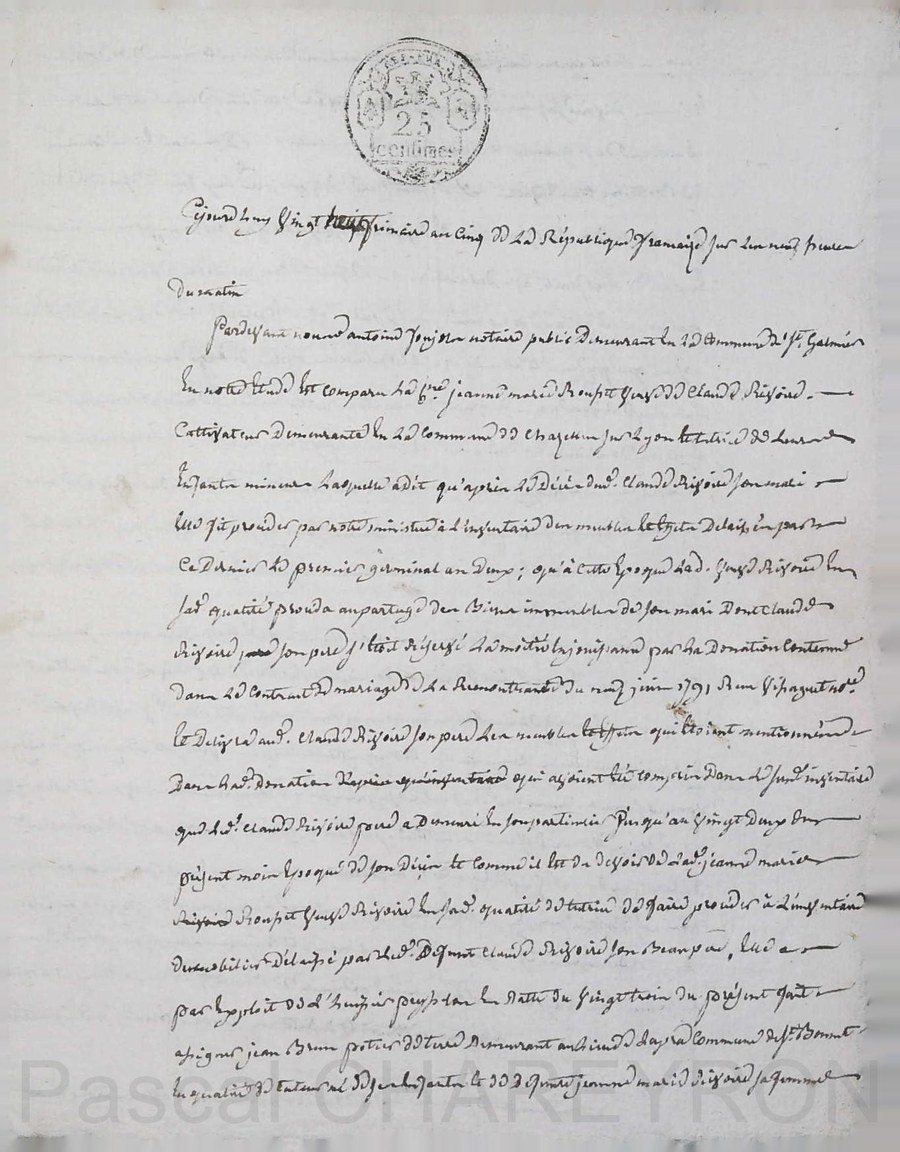 25
centimes
Cejourdhuy vingt frimaire an cinq de La République française sur Les neuf heures
Du matin
Pardevant nous antoine notaire public Demeurant En La Commune de St. Galmier
En notre Etude Est comparu La jeanne marie Roupst veuve de Claude Rivoire
Cultivateur Demeurante En La Commune de Chazelles sur Lyon tutrice de Leurs
Enfants mineurs Laquelle a dit qu'après Le Décès dud. Claude Rivoire son mari
Elle fit procéder par notre ministère à L'inventaire des meubles et Effets Delaissés par
Ce Dernier Le premier germinal an Deux ; qu'à Cette Epoque Lad. veuve Rivoire En
sad. qualité procéda au partage des Biens immeubles de son mari Dont Claude
Rivoire son père s'étoit Réservé La moitié En jouissance par La Donation Contenue
dans Le Contrat de mariage de La Remontrante du neuf juin 1791 Reçu nore.
Et Délivra aud. Claude Rivoire son père Les meubles et Effets qui Etoient mentionnés
Dans Lad. Donation qui avoient Eté compris Dans Le susd. inventaire
que Led. Claude Rivoire père a Demeuré En son particulier jusqu'au vingt Deux du
présent mois Epoque de son Décès Et Comme il Est du devoir de Lad. jeanne marie
Roupst veuve Rivoire En sad. qualité de tutrice de faire procéder à L'inventaire
du mobilier Délaissé par Led. Défunt Claude Rivoire son Beau père, Elle a
par Exploit de L'huissier En datte du vingt trois du présent fait
assigner jean Brun potier de terre Demeurant Commune de St. Bonnet
En qualité de tuteur né de ses Enfants Et de Défunte jeanne marie Rivoire sa femme
Pascal CHAREYRON